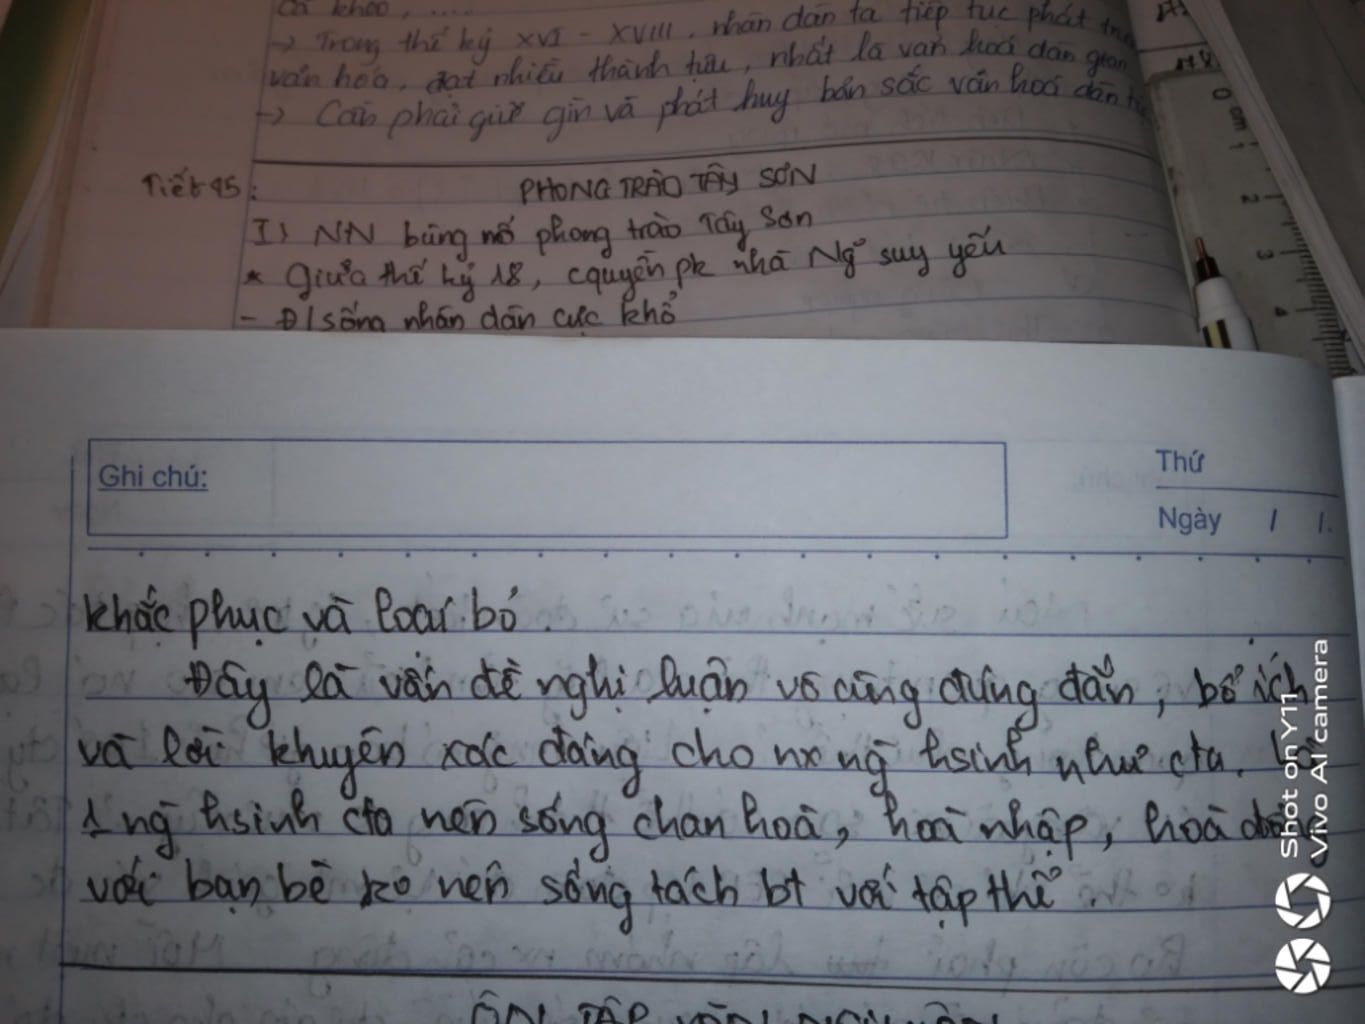 cả khoo, ....
→ Trong thế kỷ XVI - XVIII, nhân dân ta tiếp tục phát
văn hoá, đạt nhiều thành tựu, nhất là văn hoá dân gian
→ Cần phải giữ gìn và phát huy bản sắc văn hoá dân
Tiết 45:
PHONG TRÀO TÂY SƠN
I) NN bùng nổ phong trào Tây Sơn
* Giữa thế kỷ 18, cquyền pk nhà Ng~ suy yếu
- Đ/sống nhân dân cực khổ
0 cm 1 2 3 4
Ghi chú:
Thứ
Ngày / /.
khắc phục và loại bỏ.
Đây là vấn đề nghị luận vô cùng đúng đắn, bổ ích
và lời khuyên xác đáng cho nx ng̀ hsinh như cta.
1 ng̀ hsinh cta nên sống chan hoà, hoà nhập, hoà đồng
với bạn bè ko nên sống tách bt với tập thể.
ÔN TẬP VĂN NGHỊ LUẬN
Shot on Y11
Vivo AI camera